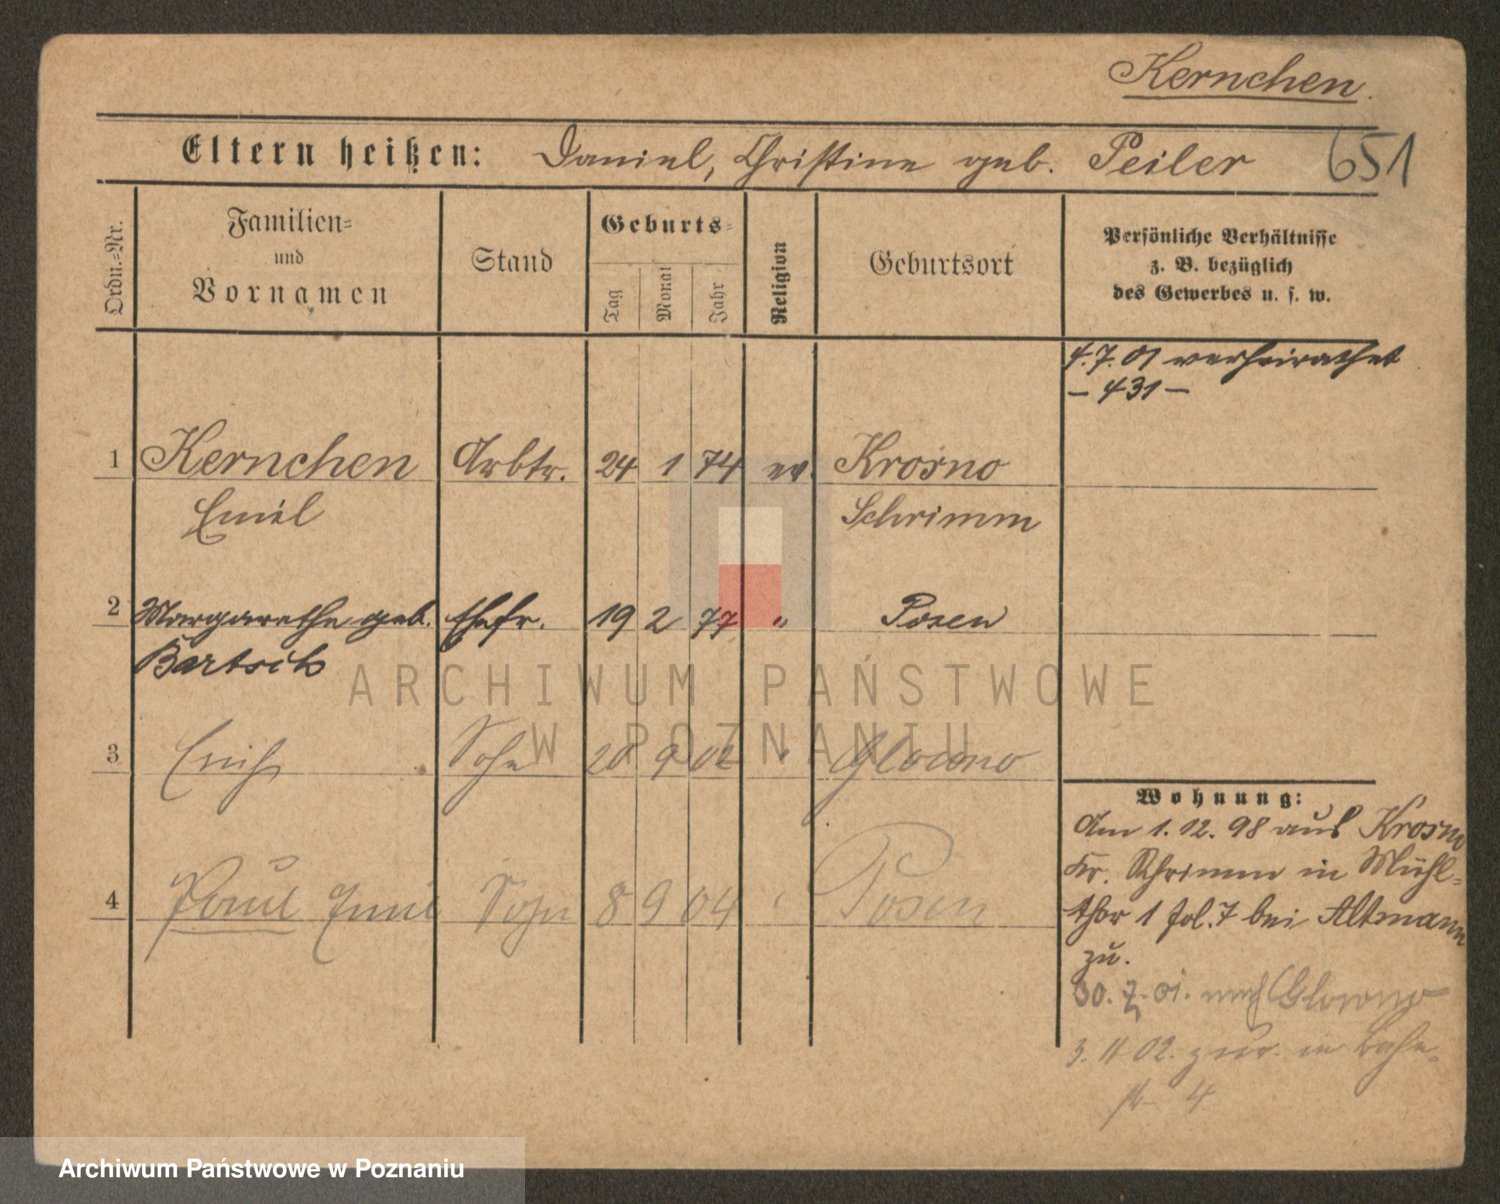 Kernchen.
Eltern heißen: Daniel, Christine geb. Peiler
651
Ordn.-Nr.
Familien-
und
Vornamen
Stand
Geburts-
Tag
Monat
Jahr
Religion
Geburtsort
Persönliche Verhältnisse
z. B. bezüglich
des Gewerbes u. s. w.
4.7.01 verheirathet
– 431 –
1 Kernchen Arbtr. 24 1 74 ev. Krosno
Emil Schrimm
2 Margarethe geb. Ehefr. 19 2 77 " Posen
Bartsch
3 Erich Sohn 20 9 02 " Glowno
4 Paul Emil Sohn 8 9 04 " Posen
Wohnung:
Am 1.12.98 aus Krosno
Kr. Schrimm in Mühl-
thor 1 fol. 7 bei Altmann
zu.
30.7.01. nach Glowno
3.11 02. zur. in Bahn-
str 4
ARCHIWUM PAŃSTWOWE
W POZNANIU
Archiwum Państwowe w Poznaniu